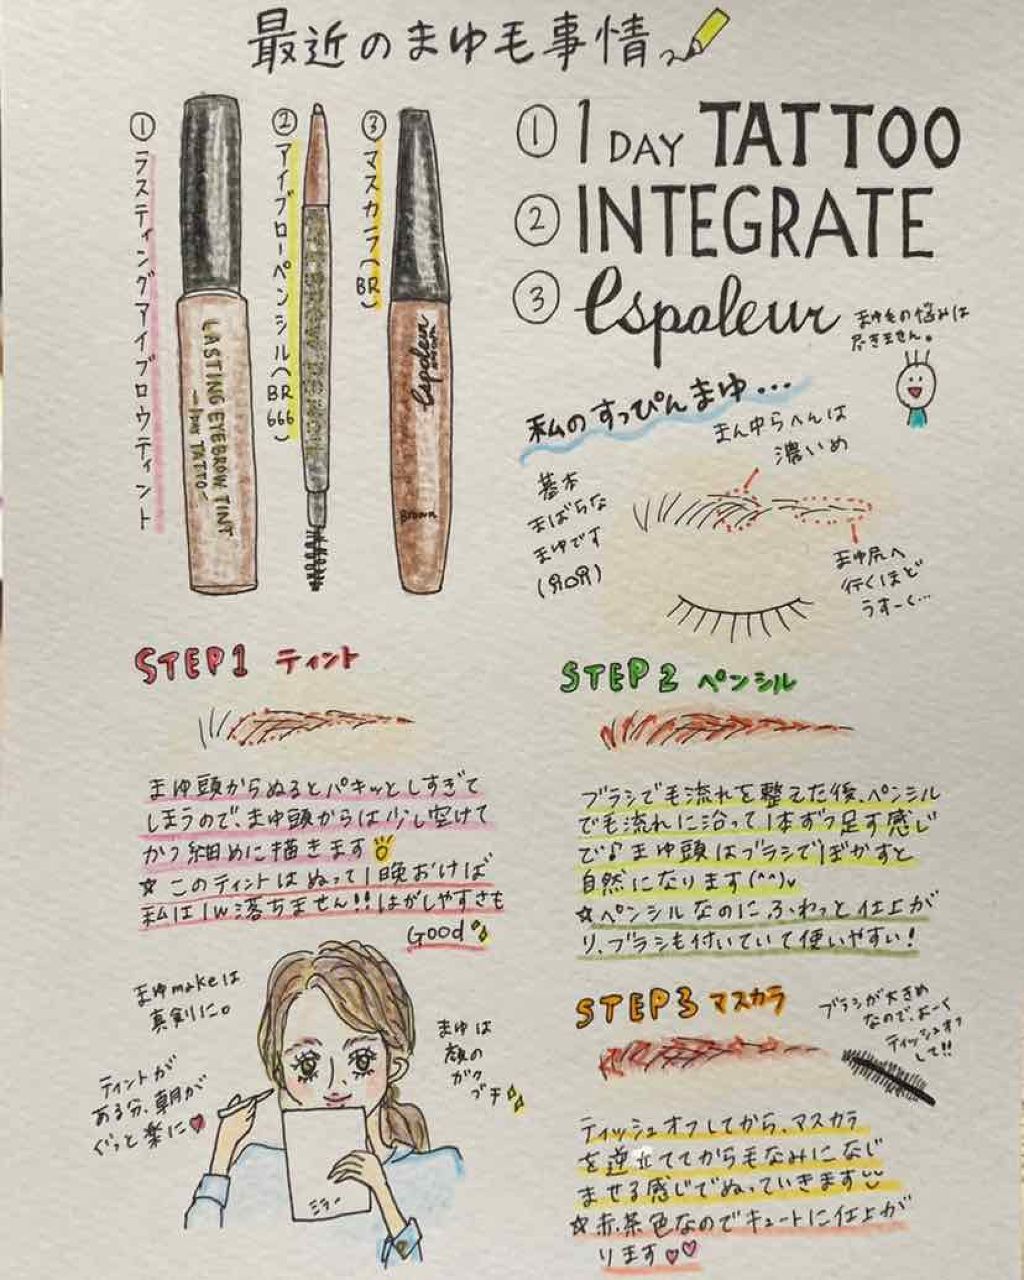 最近のまゆ毛事情
① ラスティングアイブロウティント
② アイブローペンシル(BR666)
③ マスカラ(BR)
LASTING EYEBROW TINT
-1DAY TATTO-
Espoleur
Brown
① 1 DAY TATTOO
② INTEGRATE
③ Espoleur
まゆ毛の悩みは
尽きません。
私のすっぴんまゆ…
まん中らへんは
濃いめ
基本
まばらな
まゆです
まゆ尻へ
行くほど
うすーく…
STEP1 ティント
まゆ頭からぬるとパキッとしすぎて
しまうので、まゆ頭からは少し空けて
かつ細めに描きます
☆このティントはぬって1晩おけば
私は1w落ちません!!はがしやすさも
GOOD
STEP2 ペンシル
ブラシで毛流れを整えた後、ペンシル
で毛流れに沿って1本ずつ足す感じ
で♪まゆ頭はブラシでぼかすと
自然になります(^^)v
☆ペンシルなのにふわっと仕上が
り、ブラシも付いていて使いやすい!
まゆmakeは
真剣に。
ティントが
ある分、朝が
ぐっと楽に♥
まゆは
顔の
ガク
ブチ
ミラー
STEP3 マスカラ
ブラシが大きめ
なので、よーく
ティッシュオフ
して!!
ティッシュオフしてから、マスカラ
を逆立ててから毛なみになじ
ませる感じでぬっていきます
☆赤茶色なのでキュートに仕上が
ります♡♡